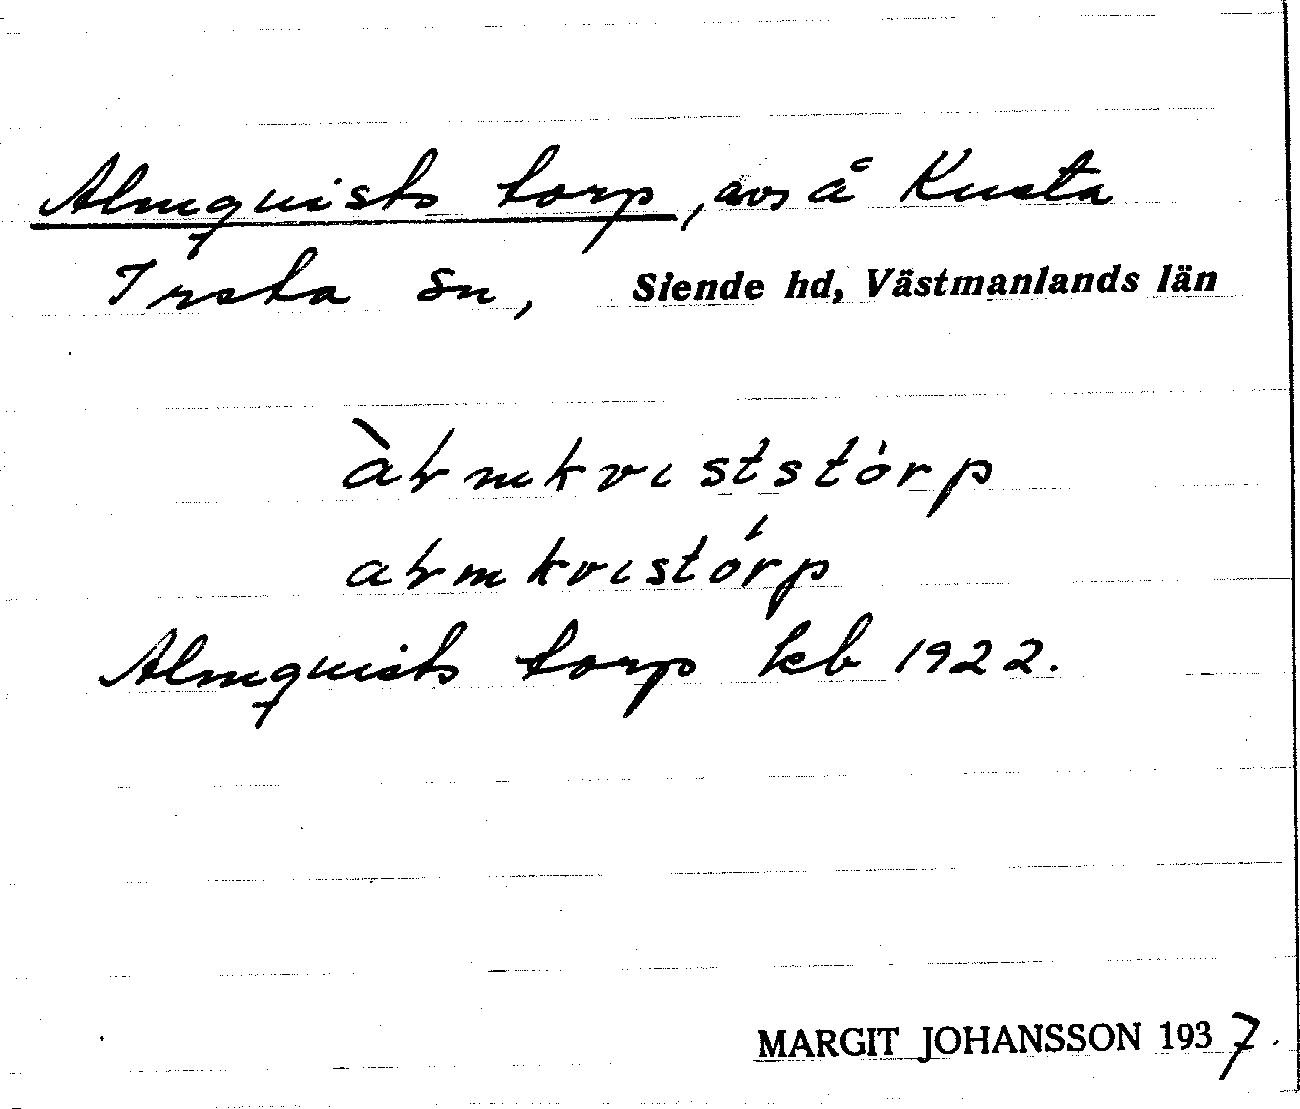 Almquists torp, avs å Kusta
Irsta sn, Siende hd, Västmanlands län
àƚmkvɩststòrp
aƚmkvɩstórp
Almquists torp kb 1922.
MARGIT JOHANSSON 1937.